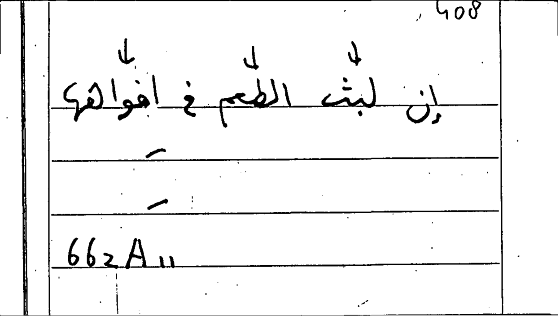 408
↓ ↓ ↓
إن لبث الطعم في افواهها
–
–
662 A 11